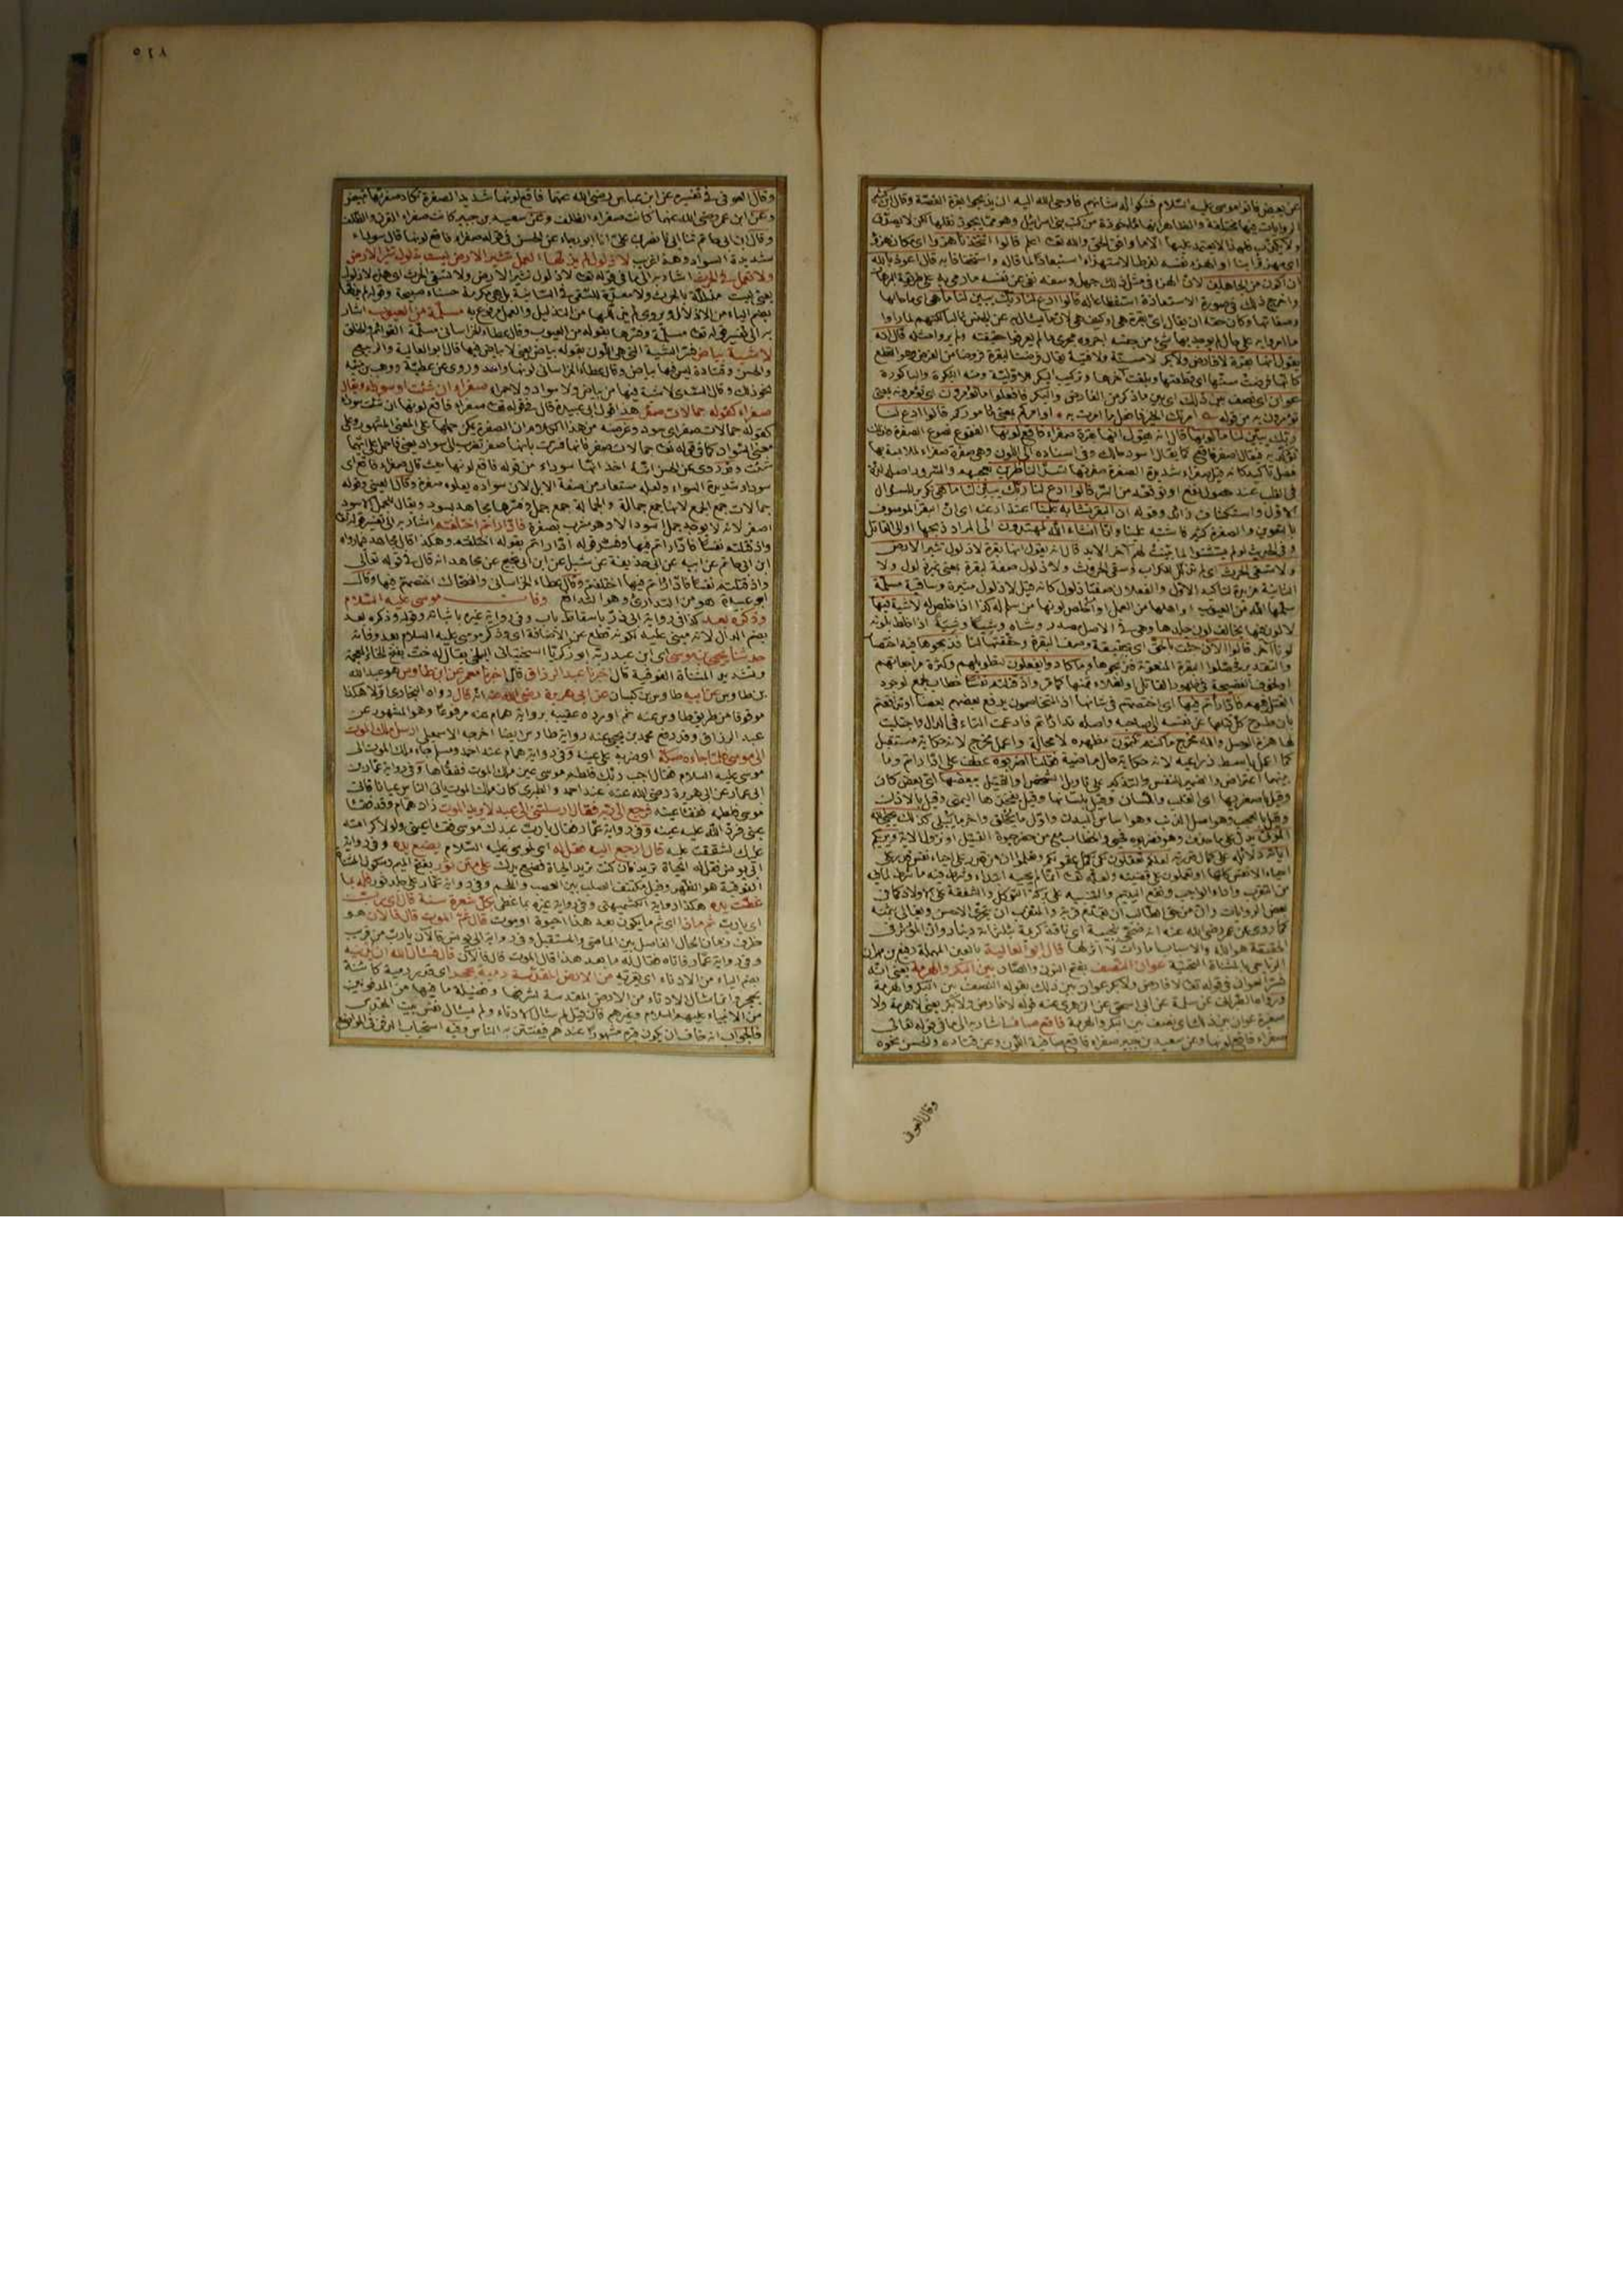 عن بعض فاتوا موسى عليه السلام فشكوا له شانهم فاوحى الله اليه ان يذبحوا بقرة القصة وقال ابن كثير
الروايات فيها مختلفة والظاهر انها ماخوذة من كتب بنى اسرائيل وهو مما يجوز نقلها لكن لا نصدق
ولا نكذب فلهذا لا يعتمد عليها الا ما وافق الحق والله تعالى اعلم قالوا اتتخذنا هزوا اى مكان هزؤ
ان اكون من الجاهلين لان الهزء فى مثل ذلك جهل وسفه نفى عن نفسه ما رمى به على طريقة البرهان
واخرج ذلك فى صورة الاستعاذة استفظاعا له قالوا ادع لنا ربك يبين لنا ما هى اى ما حالها
يقول انها بقرة لا فارض ولا بكر لا مسنة ولا فتية يقال فرضت البقرة فروضا من الفرض وهو القطع
كانها فرضت سنها اى قطعتها وبلغت آخرها وتركيب البكر للاولية ومنه البكرة والباكورة
عوان اى نصف بين ذلك اى بين ما ذكر من الفارض والبكر فافعلوا ما تؤمرون اى تؤمرونه بمعنى
ربك يبين لنا ما لونها قال انه يقول انها بقرة صفراء فاقع لونها الفقوع نصوع الصفرة
فى القلب عند حصول نفع او توقعه من السر قالوا ادع لنا ربك يبين لنا ما هى تكرير للسؤال
الاول واستكشاف زائد وقوله ان البقر تشابه علينا اعتذار عنه اى ان البقر الموصوف
بالتعوين والصفرة كثير فاشتبه علينا وانا ان شاء الله لمهتدون الى المراد ذبحها او الى القاتل
وفى الحديث لو لم يستثنوا لما بينت لهم آخر الابد قال انه يقول انها بقرة لا ذلول تثير الارض
ولا تسقى الحرث اى لم تذلل للكراب وسقى الحروث ولا ذلول صفة لبقرة بمعنى غير ذلول ولا
الثانية مزيدة لتاكيد الاولى والفعلان صفتا ذلول كانه قيل لا ذلول مثيرة وساقية مسلمة
سلمها الله من العيوب او اهلها من العمل او اخلص لونها من سلم له كذا اذا خلص له لا شية فيها
لا لون فيها يخالف لون جلدها وهى فى الاصل مصدر وشاه وشيا وشية اذا خلط بلونه
لونا آخر قالوا الآن جئت بالحق اى بحقيقة وصف البقرة وحققتها لنا فذبحوها فيه اختصار
والتقدير فحصلوا البقرة المنعوتة فذبحوها وما كادوا يفعلون لتطويلهم وكثرة مراجعاتهم
او لخوف الفضيحة فى ظهور القاتل او لغلاء ثمنها كما مر واذ قتلتم نفسا خطاب الجمع لوجود
القتل فيهم فادارأتم فيها اى اختصمتم فى شانها اذ المتخاصمون يدفع بعضهم بعضا او تدافعتم
بان طرح كل قتلها عن نفسه الى صاحبه واصله تدارأتم فادغمت التاء فى الدال واجتلبت
لها همزة الوصل والله مخرج ما كنتم تكتمون مظهره لا محالة واعمل مخرج لانه حكاية مستقبل
كما اعمل باسط ذراعيه لانه حكاية حال ماضية فقلنا اضربوه عطف على ادارأتم وما
بينهما اعتراض والضمير للنفس والتذكير على تاويل الشخص او القتيل ببعضها اى بعض كان
وقيل باصغريها اى القلب واللسان وقيل بلسانها وقيل بفخذها اليمنى وقيل بالاذن
وقيل بالعجب وهو اصل الذنب وهو اساس البدن واول ما يخلق وآخر ما يبلى كذلك يحيى الله
الموتى يدل على ما حذف وهو فضربوه فحيى والخطاب مع من حضر حياة القتيل او نزول الاية ويريكم
آياته دلائله على كمال قدرته لعلكم تعقلون لكى يكمل عقولكم وتعلموا ان من قدر على احياء نفس قدر على
احياء الانفس كلها او تعملون على قضيته ولعله تعالى انما لم يحيه ابتداء وشرط فيه ما شرط لما فيه
من التقرب واداء الواجب ونفع اليتيم والتنبيه على بركة التوكل والشفقة على الاولاد كما فى
بعض الروايات وان من حق الطالب ان يقدم قربة والمتقرب ان يتحرى الاحسن ويغالى بثمنه
كما روى عن عمر رضى الله عنه انه ضحى بنجيبة اى ناقة كريمة بثلثمائة دينار وان المؤثر فى
الحقيقة هو الله والاسباب امارات لا اثر لها قال ابو العالية بالعين المهملة رفيع بن مهران
الرياحى بالمثناة التحتية عوان النصف بفتح النون والصاد بين البكر والهرمة يعنى انه
فسر العوان فى قوله تعالى لا فارض ولا بكر عوان بين ذلك بقوله النصف بين البكر والهرمة
صغيرة عوان بين ذلك اى نصف بين البكر والهرمة فاقع صاف اشار به الى ما فى قوله تعالى
صفراء فاقع لونها وعن سعيد بن جبير صفراء فاقع صافية اللون وعن قتادة والحسن نحوه
وقال العوفى
٥٢٨
وقال العوفى فى تفسيره عن ابن عباس رضى الله عنهما فاقع لونها شديد الصفرة تكاد صفرتها تبيض
وعن ابن عمر رضى الله عنهما كانت صفراء الظلف وعن سعيد بن جبير كانت صفراء القرن والظلف
وقال ابن ابى حاتم ثنا ابى ثنا نصر بن على انا ابو رجاء عن الحسن فى قوله صفراء فاقع لونها قال سوداء
شديدة السواد وهذا غريب لا ذلول لم يذلها العمل تثير الارض ليست بذلول تثير الارض
ولا تعمل فى الحرث اشار به الى ما فى قوله تعالى لا ذلول تثير الارض ولا تسقى الحرث
يعنى ليست مذللة بالحرث ولا معدة للسقى فى السانية بل هى مكرمة حسناء صبيحة
به الى تفسير قوله تعالى مسلمة وفسرها بقوله من العيوب وقال عطاء الخراسانى مسلمة القوائم والخلق
لا شية بياض فسر الشية التى هى اللون بقوله بياض يعنى لا بياض فيها قال ابو العالية والربيع
والحسن وقتادة ليس فيها بياض وقال عطاء الخراسانى لونها واحد وروى عن عطية ووهب بن منبه
نحو ذلك وقال السدى لا شية فيها من بياض ولا سواد ولا حمرة صفراء ان شئت سوداء ويقال
صفراء كقوله جمالات صفر هذا قول ابى عبيدة قال فى قوله تعالى صفراء فاقع لونها ان شئت سوداء
معنى السواد كما فى قوله تعالى جمالات صفر فانها فسرت بانها صفر تضرب الى سواد يعنى فاحمل على ايهما
شئت وقد روى عن الحسن انه اخذ انها سوداء من قوله فاقع لونها حيث قال صفراء فاقع اى
سوداء شديدة السواد ولعله مستعار من صفة الابل لان سواده يعلوه صفرة
اصفر لانه لا يوجد جمل اسود الا وهو مشرب بصفرة فادارأتم اختلفتم اشار به الى تفسير قوله تعالى
واذ قتلتم نفسا فادارأتم فيها وفسر قوله ادارأتم بقوله اختلفتم وهكذا قال مجاهد فيما رواه
ابن ابى حاتم عن ابيه عن ابى حذيفة عن شبل عن ابن ابى نجيح عن مجاهد انه قال فى قوله تعالى
واذ قتلتم نفسا فادارأتم فيها اختلفتم وقال عطاء الخراسانى والضحاك اختصمتم فيها وقال
ابو عبيدة هو من التدارئ وهو التدافع وفات موسى عليه السلام
وذكره بعد كذا فى رواية ابى ذر باسقاط باب وفى رواية غيره باثباته وقوله وذكره بعد
بضم الدال لانه مبنى عليه لكونه قطع عن الاضافة اى وذكر موسى عليه السلام بعد وفاته
حدثنا يحيى بن موسى اى ابن عبد ربه ابو زكريا السختيانى البلخى يقال له خت بفتح الخاء المعجمة
وتشديد المثناة الفوقية قال اخبرنا عبد الرزاق قال اخبرنا معمر عن ابن طاوس هو عبد الله
بن طاوس عن ابيه طاوس بن كيسان عن ابى هريرة رضى الله عنه انه قال رواه البخارى اولا هكذا
موقوفا من طريق طاوس عنه ثم اورده عقيبه برواية همام عنه مرفوعا وهو المشهور عن
عبد الرزاق وقد رفع محمد بن يحيى عنه رواية طاوس ايضا اخرجه الاسمعيلى ارسل ملك الموت
الى موسى فلما جاءه صكه اى ضربه على عينه وفى رواية همام عند احمد ومسلم جاء ملك الموت الى
موسى عليه السلام فقال اجب ربك فلطم موسى عين ملك الموت ففقأها وفى رواية عمار بن
ابى عمار عن ابى هريرة رضى الله عنه عند احمد والطبرى كان ملك الموت ياتى الناس عيانا فاتى
موسى فلطمه ففقأ عينه فرجع الى ربه فقال ارسلتنى الى عبد لا يريد الموت زاد همام وقد فقأ
عينى فرد الله عليه عينه وفى رواية عمار فقال يا رب عبدك موسى فقأ عينى ولولا كرامته
عليك لشققت عليه قال ارجع اليه فقل له اى لموسى عليه السلام يضع يده وفى رواية
ابى يونس فقل له الحياة تريد فان كنت تريد الحياة فضع يدك على متن ثور بفتح الميم وسكون المثناة
الفوقية هو الظهر وقيل مكتنف الصلب بين العصب واللحم وفى رواية عمار على جلد ثور فله بما
غطت يده هكذا رواية الكشميهنى وفى رواية غيره بما غطى بكل شعرة سنة قال اى رب
اى يا رب ثم ماذا اى ثم ما يكون بعد هذا احياة او موت قال ثم الموت قال فالآن هو
ظرف زمان للحال الفاصل بين الماضى والمستقبل وفى رواية ابى يونس فالآن يا رب من قريب
وفى رواية عمار فاتاه فقال له ما بعد هذا قال الموت قال فالآن قال فسأل الله ان يدنيه
بضم الياء من الادناء اى يقربه من الارض المقدسة رمية بحجر اى قدر رمية كائنة
بحجر وانما سال الادناء من الارض المقدسة لشرفها وفضيلة ما فيها من المدفونين
من الانبياء عليهم السلام وغيرهم فان قيل لم سال الادناء ولم يسال نفس بيت المقدس
فالجواب انه خاف ان يكون قبره مشهورا عندهم فيفتتن به الناس وفيه استحباب الدفن فى المواضع